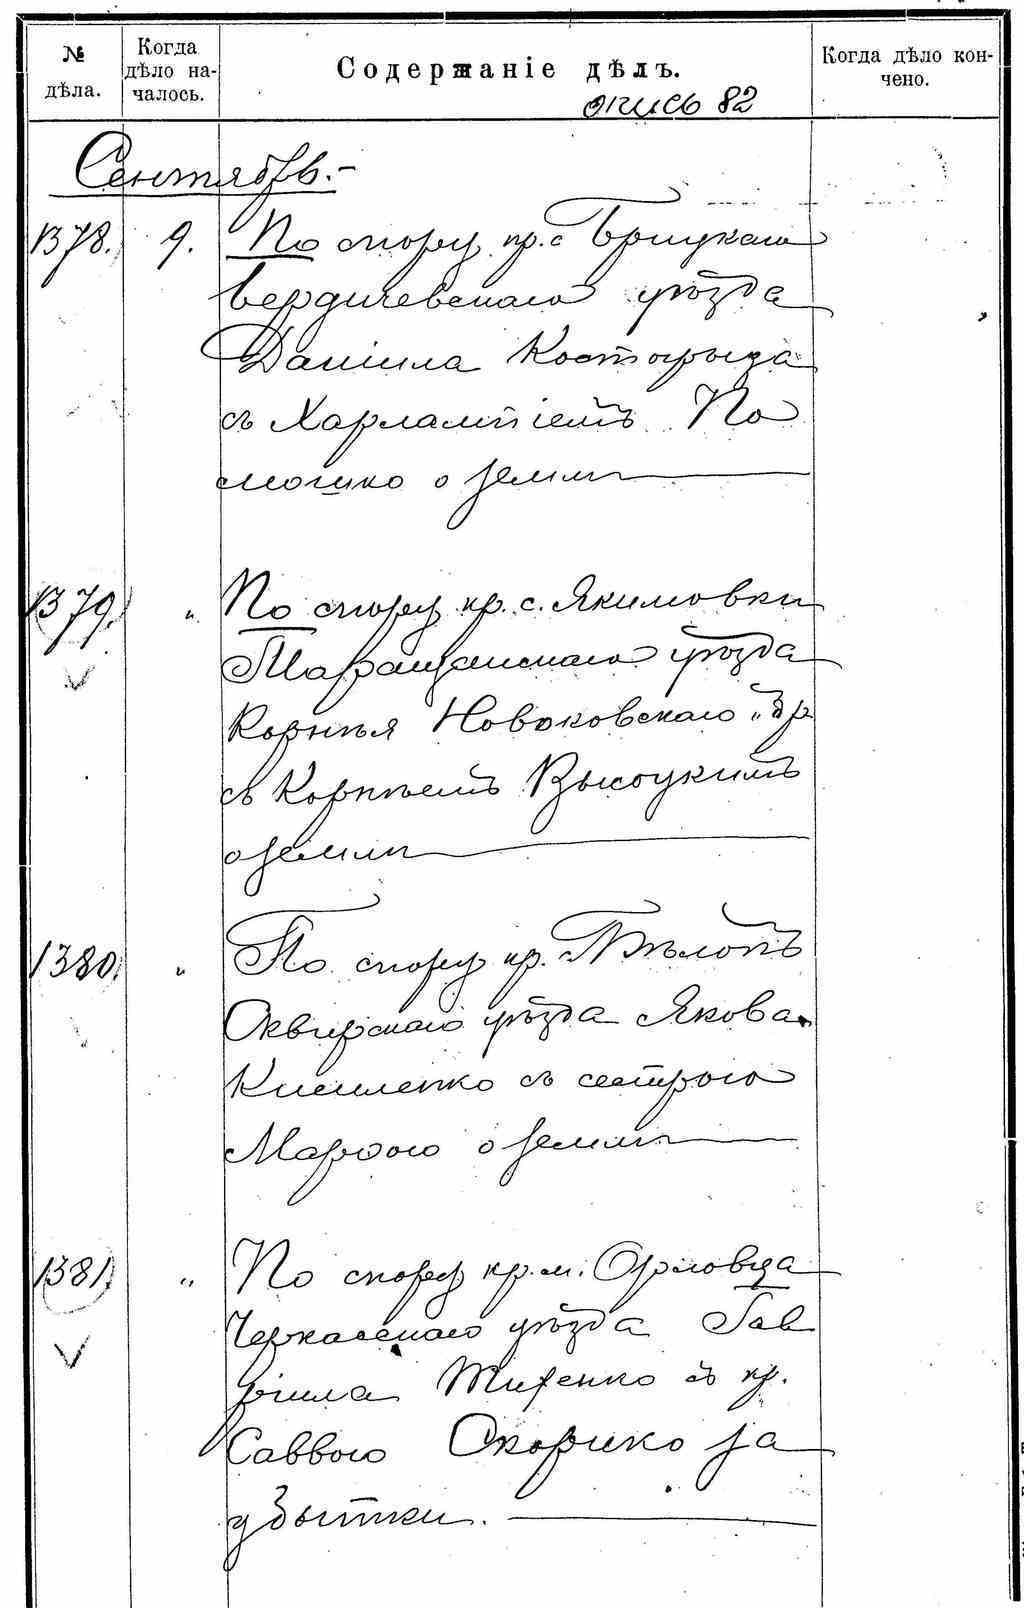 № дѣла.
Когда дѣло на-
чалось.
Содержаніе дѣлъ.
Когда дѣло кон-
чено.
опись 82
Сентябрь.-
1378. 9. По спору кр. с Брицкаго
Бердичевскаго уѣзда
Даніила Костогрыза
съ Харлампіемъ По
мошко о землѣ
1379. " По спору кр. с. Якимовки
Таращанскаго уѣзда
Корнѣя Новаковскаго и др
съ Корнѣемъ Высоцкимъ
о землѣ
1380. " По спору кр.
Сквирскаго уѣзда Якова
съ сестрою
Марѳою о землѣ
1381. " По спору кр. м. Орловца
Черкасскаго уѣзда Гав
ріила съ кр.
Саввою Скорико за
убытки.